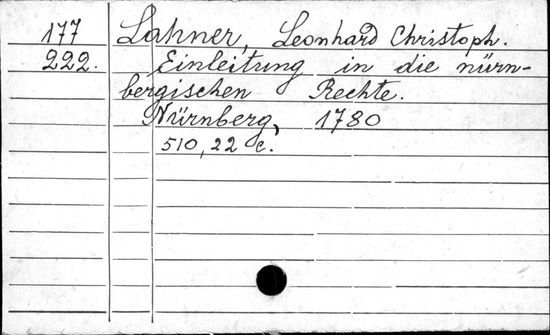 177 Lahner, Leonhard Christoph.
222. Einleitung in die nürn-
bergischen Rechte.
Nürnberg, 1780
510, 22 c.